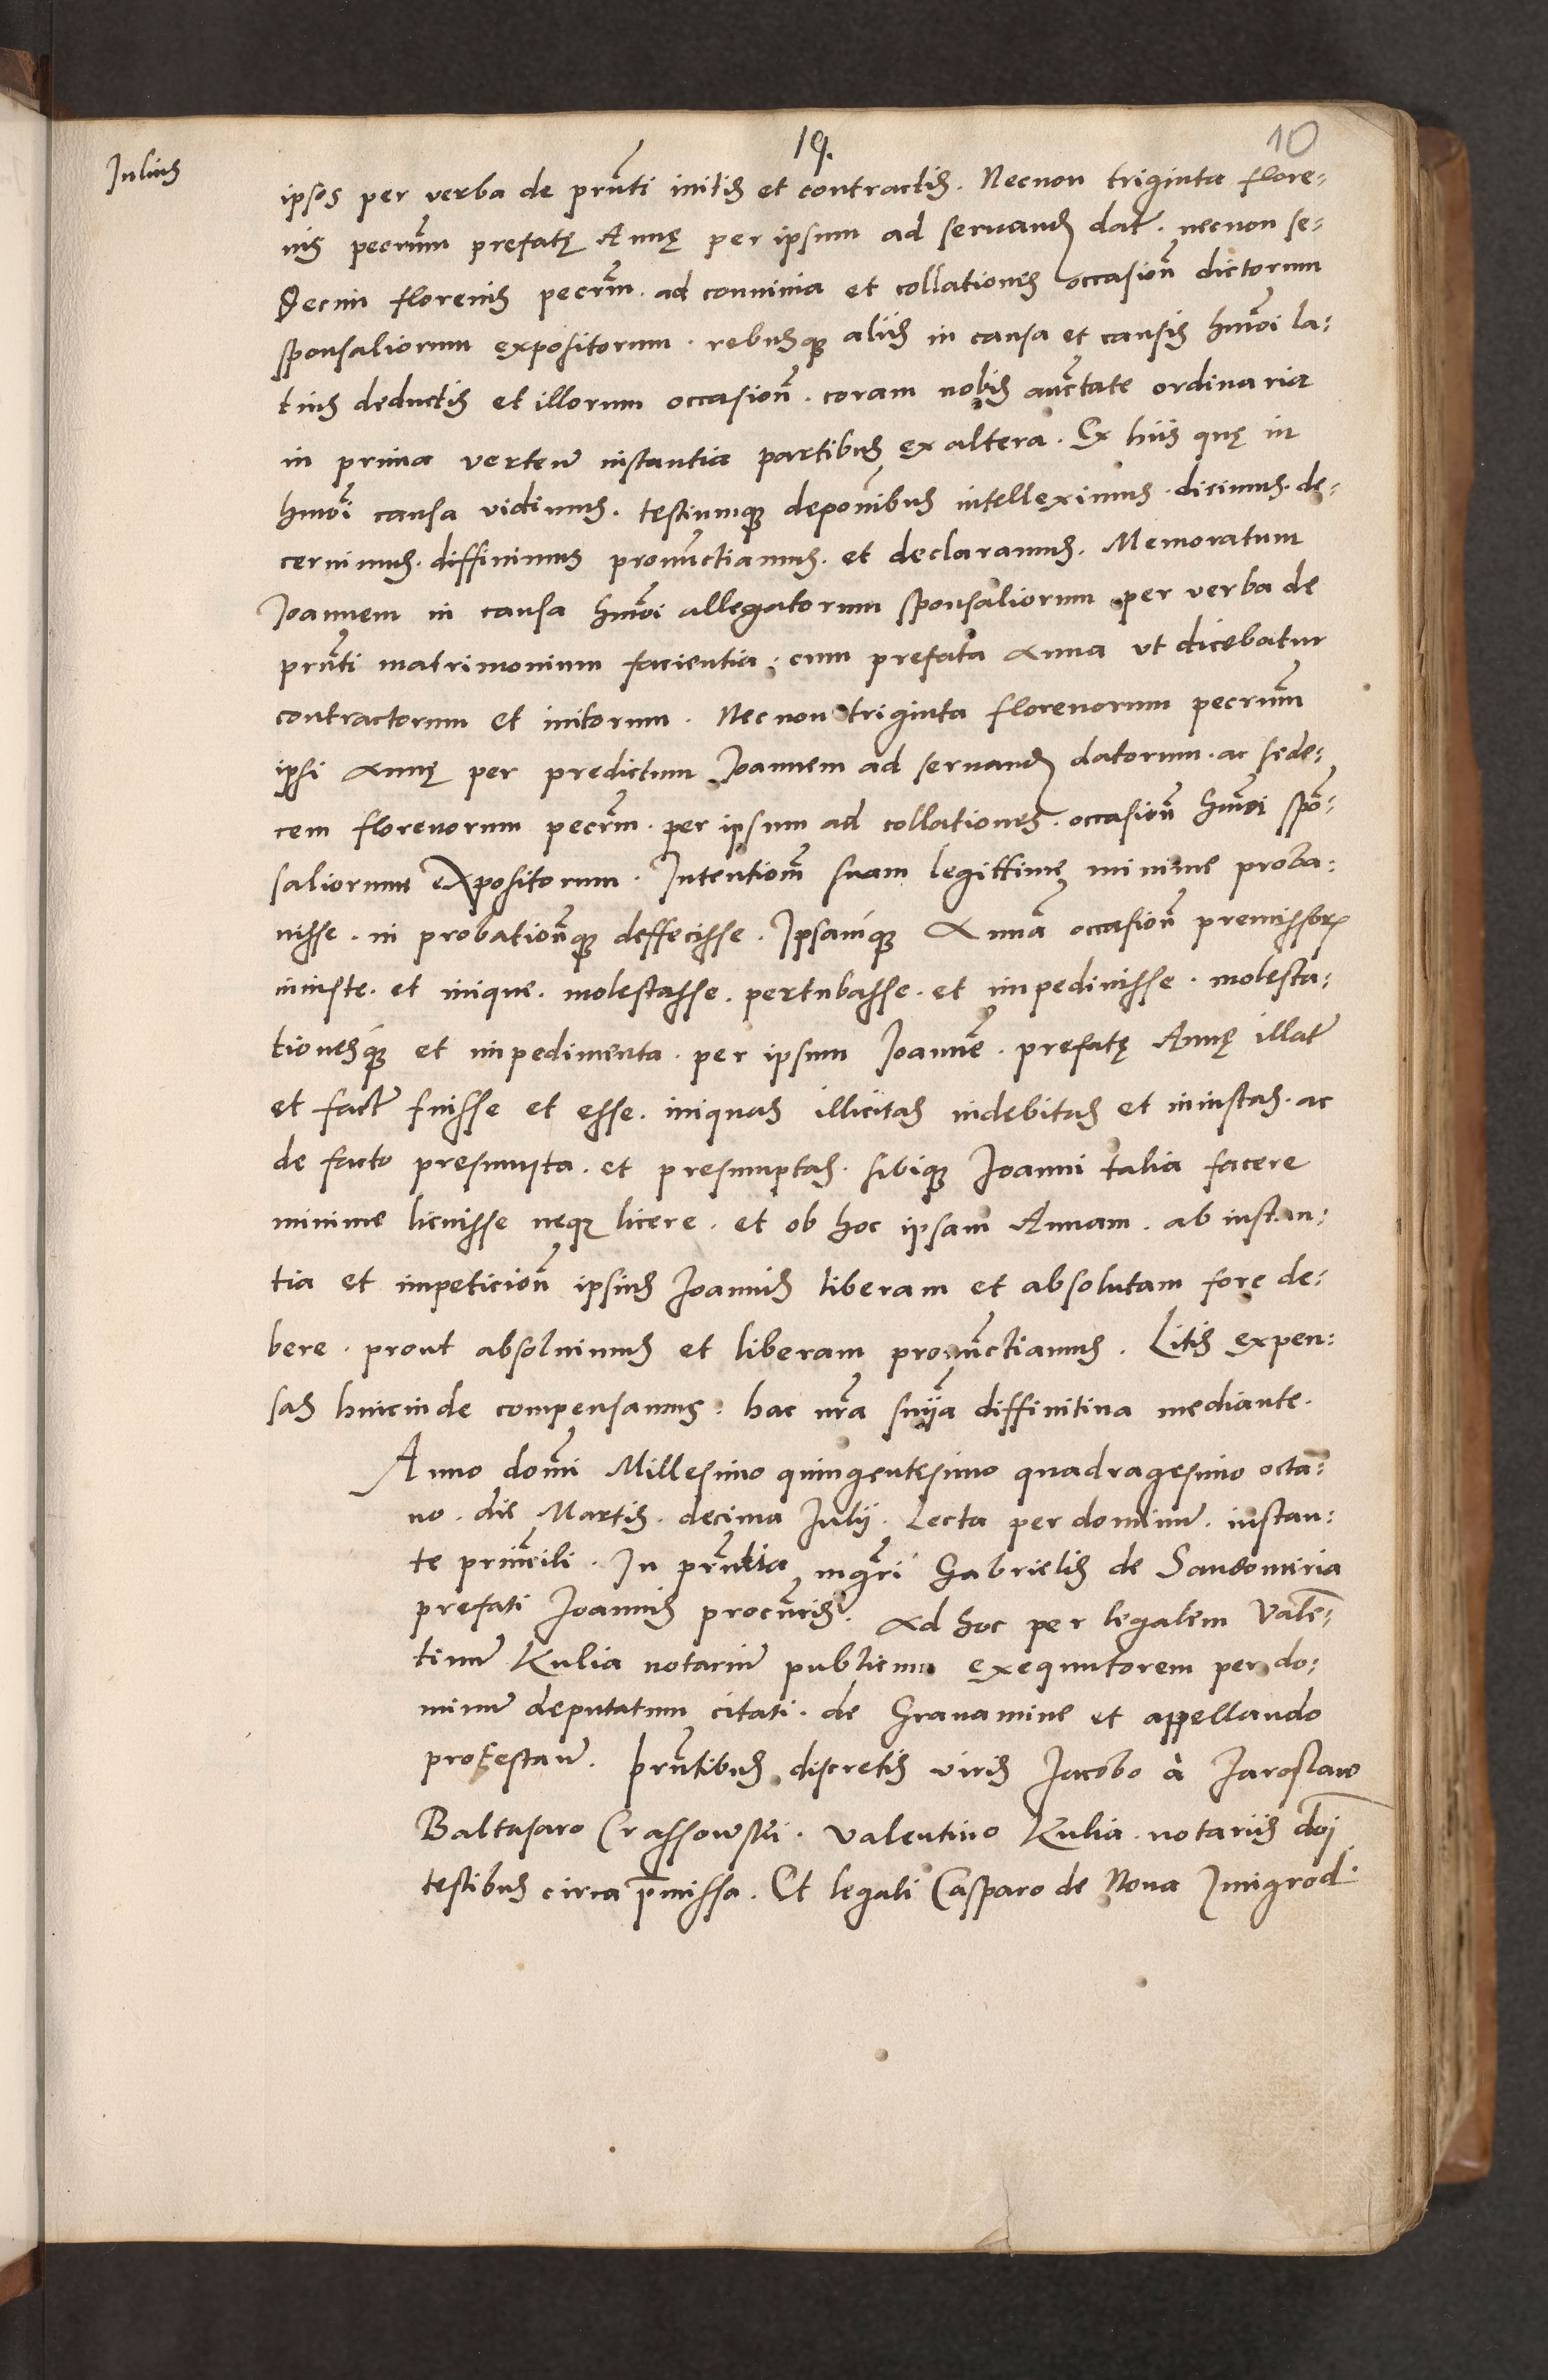 19.
10
Julius
ipsos per verba de prñti initis et contractis. Necnon triginta flore-
nis pecrũm prefatę Annę per ipsum ad seruand dat̃. necnon se-
decim florenis pecrm̃. ad conuiuia et collationes occasioñ dictorum
sponsaliorum expositorum. rebusq3 aliis in causa et causis hmõi la-
tius deductis et illorum occasioñ. coram nobis auc̃tate ordinaria
in prima verteñ instantia partibus ex altera. Ex hiis quę in
hmõi causa vidimus. testiumq3 deponĩbus intelleximus. dicimus. de-
cernimus. diffinimus pronũctiamus. et declaramus. Memoratum
Joannem in causa hmõi allegatorum sponsaliorum per verba de
prñti matrimonium facientia: cum prefata Anna vt dicebatur
contractorum et initorum. Necnon triginta florenorum pecrũm
ipsi Annę per predictum Joannem ad seruand datorum. ac sede-
cem florenorum pecrm̃. per ipsum ad collationes. occasioñ hmõi spõ-
saliorum expositorum. Intentiom̃ suam legittimę minime proba-
uisse. in probationẽq3 deffecisse. Ipsamq3 Annã occasioñ premissorꝝ
iniuste. et inique. molestasse. pertubasse. et impediuisse. molesta-
tionesq3 et impedimenta. per ipsum Joannẽ. prefatę Annę illat̃
et fact̃ fuisse et esse. iniquas illicitas indebitas et iniustas. ac
de facto presumpta. et presumptas. sibiq3 Joanni talia facere
minime licuisse neq3 licere. et ob hoc ipsam Annam. ab instan-
tia et impeticioñ ipsius Joannis liberam et absolutam fore de-
bere. prout absoluimus et liberam pronũctiamus. Litis expen-
sas hincinde compensamus: hac nr̃a snĩja diffinitiua mediante.
Anno domĩ Millesimo quingentesimo quadragesimo octa-
uo. die Martis. decima Julij. Lecta per dominũ. instan-
te princĩli. In prñtia mgr̃i Gabrielis de Sandomiria
prefati Joannis procũris. Ad hoc per legalem Valẽ-
tinũ Kulia notariũ publicum exequutorem per do-
minũ deputatum citati. de Grauamine et appellando
protestañ. Prñtibus discretis viris Jacobo à Jaroslaw
Baltasaro Crassowski. Valentino Kulia. notariis dñi
testibus circa p̃missa. Et legali Casparo de Noua Imigrod.